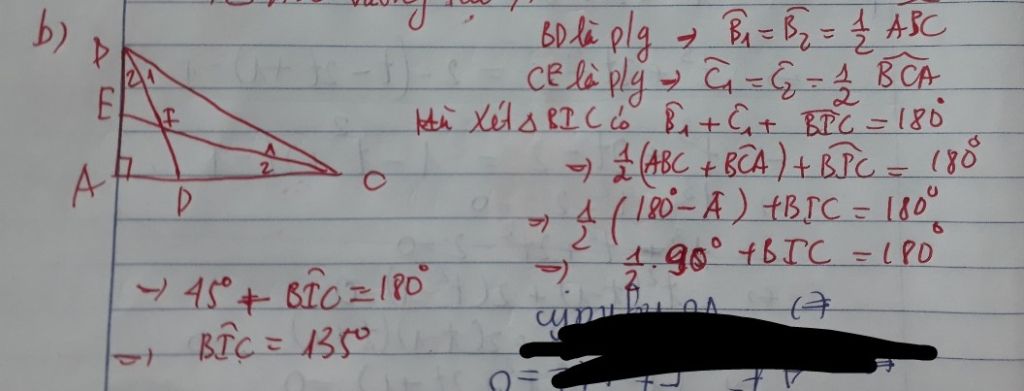 b)
B
2 1
E
I
1
2
A
D
C
BD là p/g → B̂₁ = B̂₂ = 1/2 ABC
CE là p/g → Ĉ₁ = Ĉ₂ = 1/2 BCA
Xét △BIC có B̂₁ + Ĉ₁ + BIC = 180°
⇒ 1/2 (ABC + BCA) + BIC = 180°
⇒ 1/2 (180° - Â) + BIC = 180°
⇒ 1/2 . 90° + BIC = 180°
→ 45° + BIC = 180°
⇒ BIC = 135°